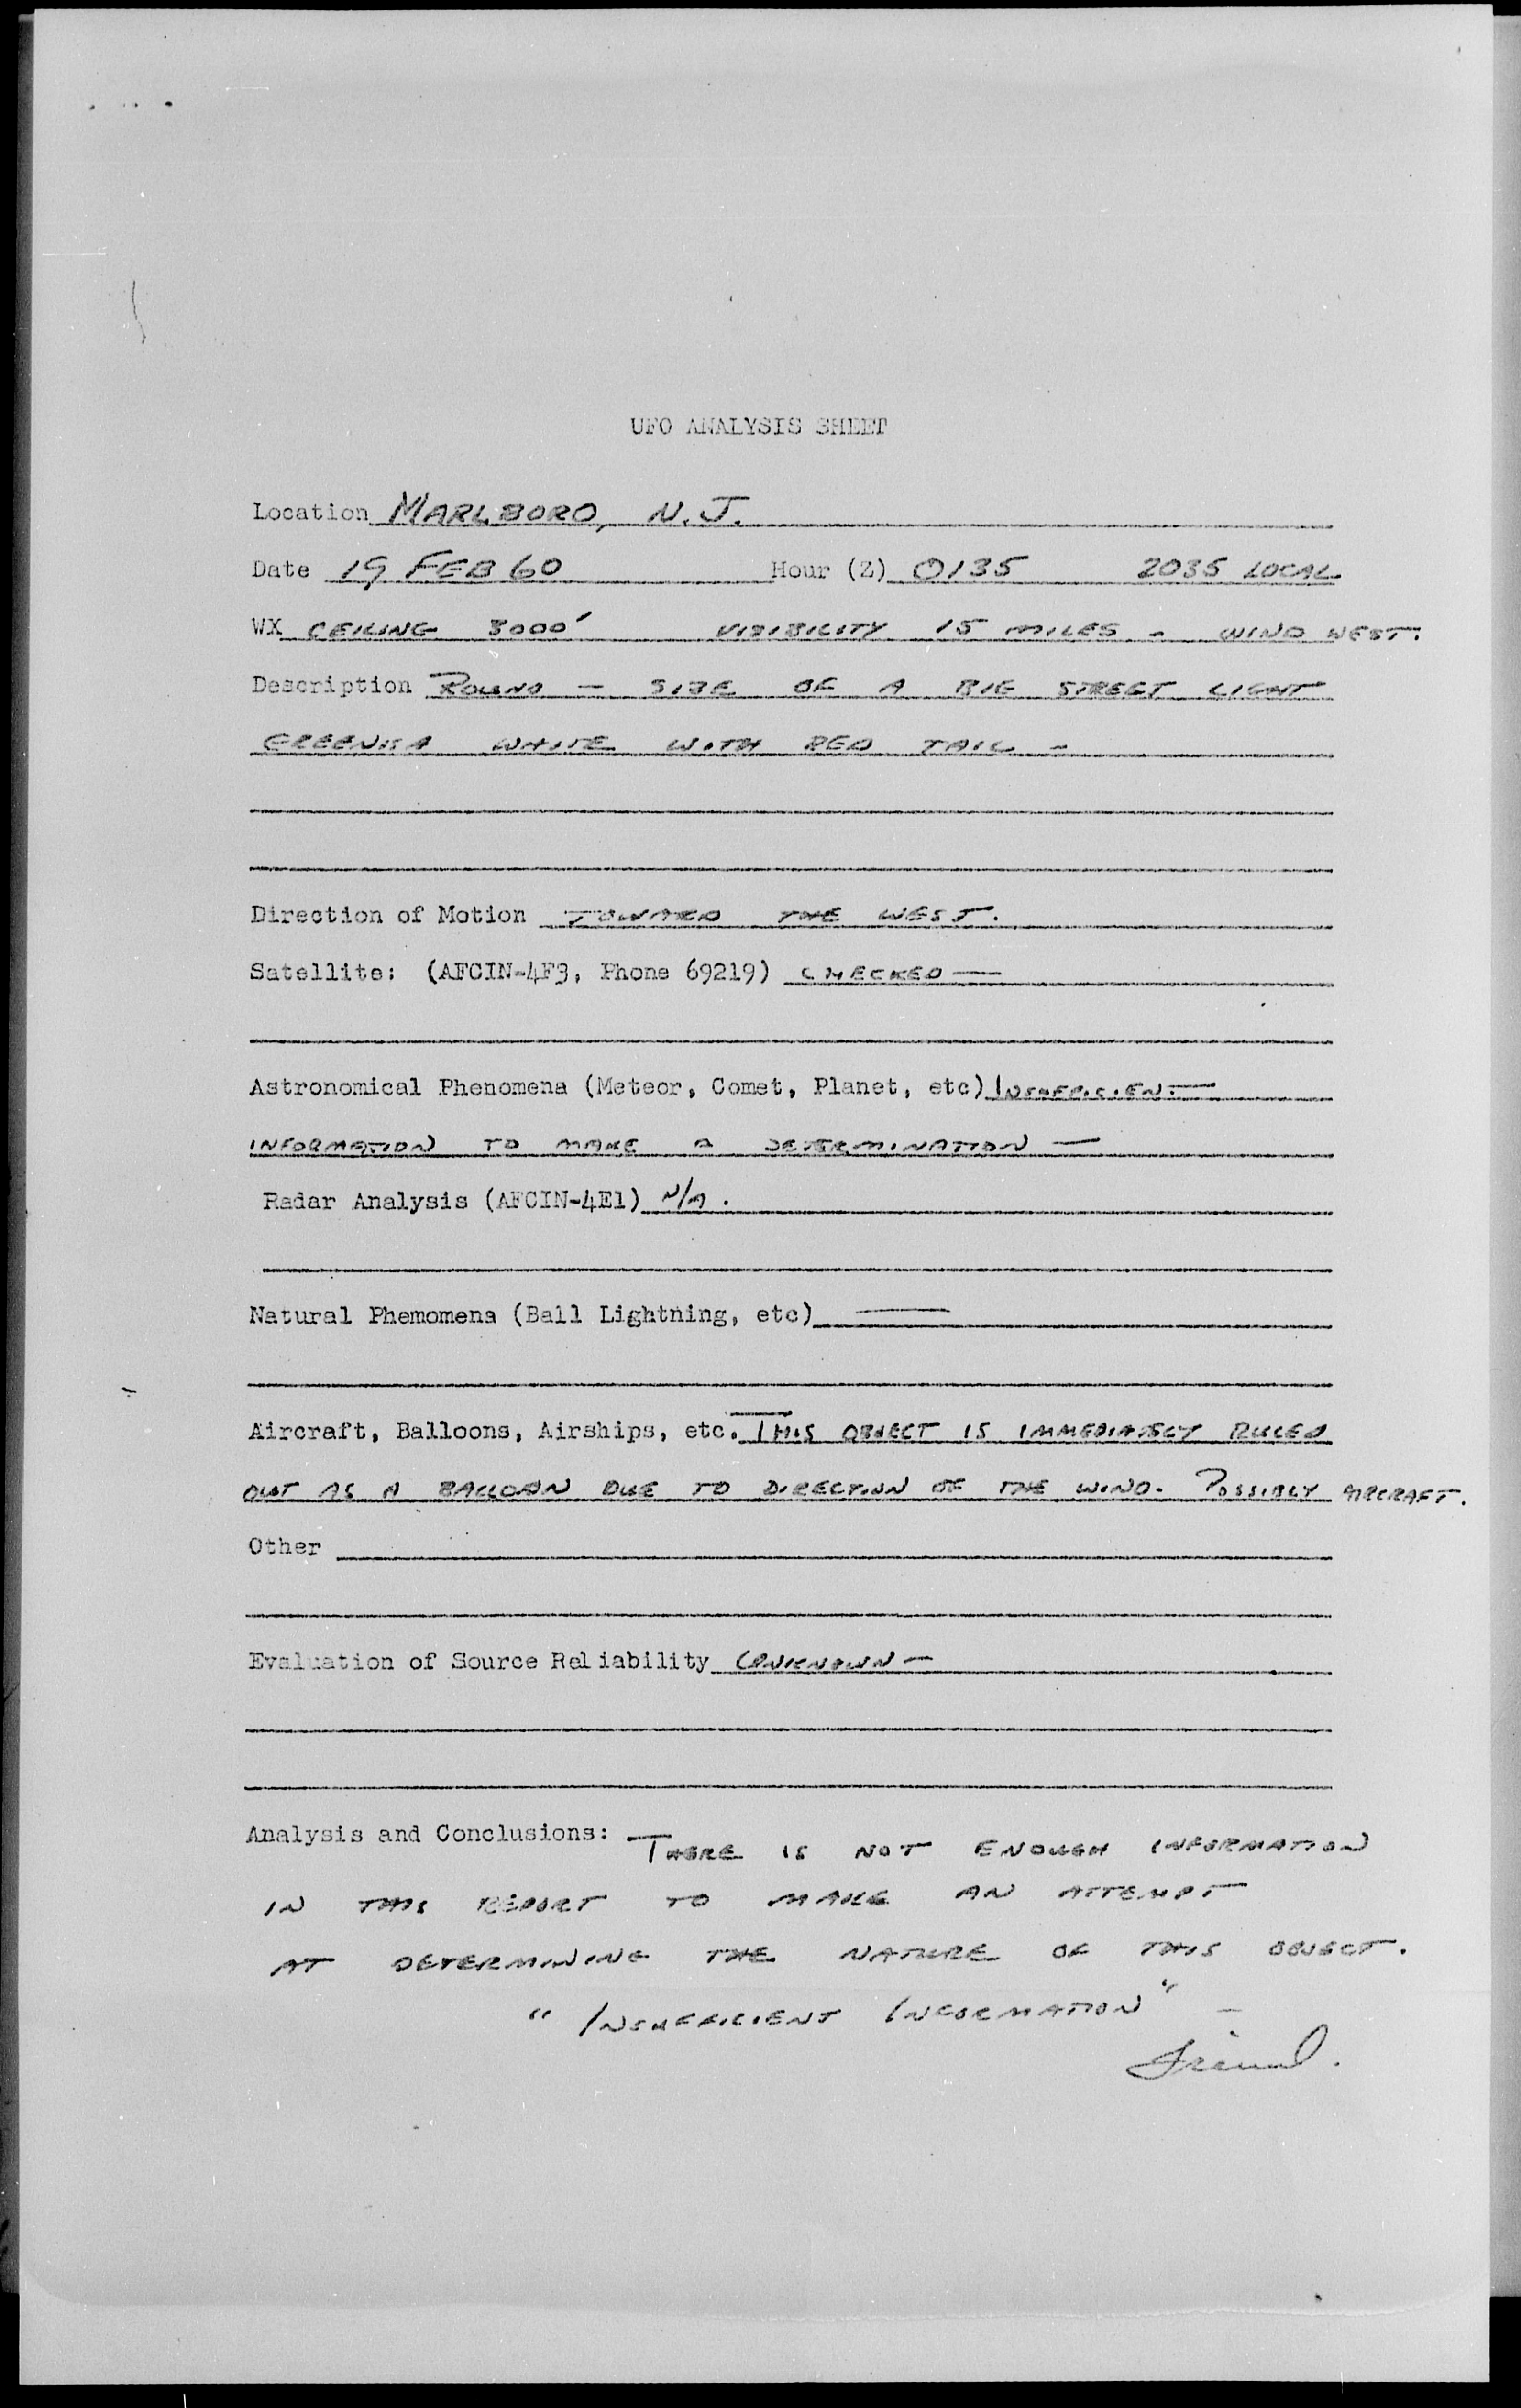 UFO ANALYSIS SHEET
Location MARLBORO, N.J.
Date 19 FEB 60 Hour (Z) 0135 2035 LOCAL
WX CEILING 8000' VISIBILITY 15 MILES - WIND WEST.
Description ROUND - SIZE OF A BIG STREET LIGHT
GREENISH WHITE WITH RED TAIL -
Direction of Motion TOWARD THE WEST.
Satellite: (AFCIN-4F3, Phone 69219) CHECKED —
Astronomical Phenomena (Meteor, Comet, Planet, etc) INSUFFICIENT
INFORMATION TO MAKE A DETERMINATION —
Radar Analysis (AFCIN-4E1) N/A.
Natural Phemomena (Ball Lightning, etc) —
Aircraft, Balloons, Airships, etc. THIS OBJECT IS IMMEDIATELY RULED
OUT AS A BALLOON DUE TO DIRECTION OF THE WIND. POSSIBLY AIRCRAFT.
Other
Evaluation of Source Reliability UNKNOWN —
Analysis and Conclusions: THERE IS NOT ENOUGH INFORMATION
IN THIS REPORT TO MAKE AN ATTEMPT
AT DETERMINING THE NATURE OF THIS OBJECT.
"INSUFFICIENT INFORMATION" —
Friend.